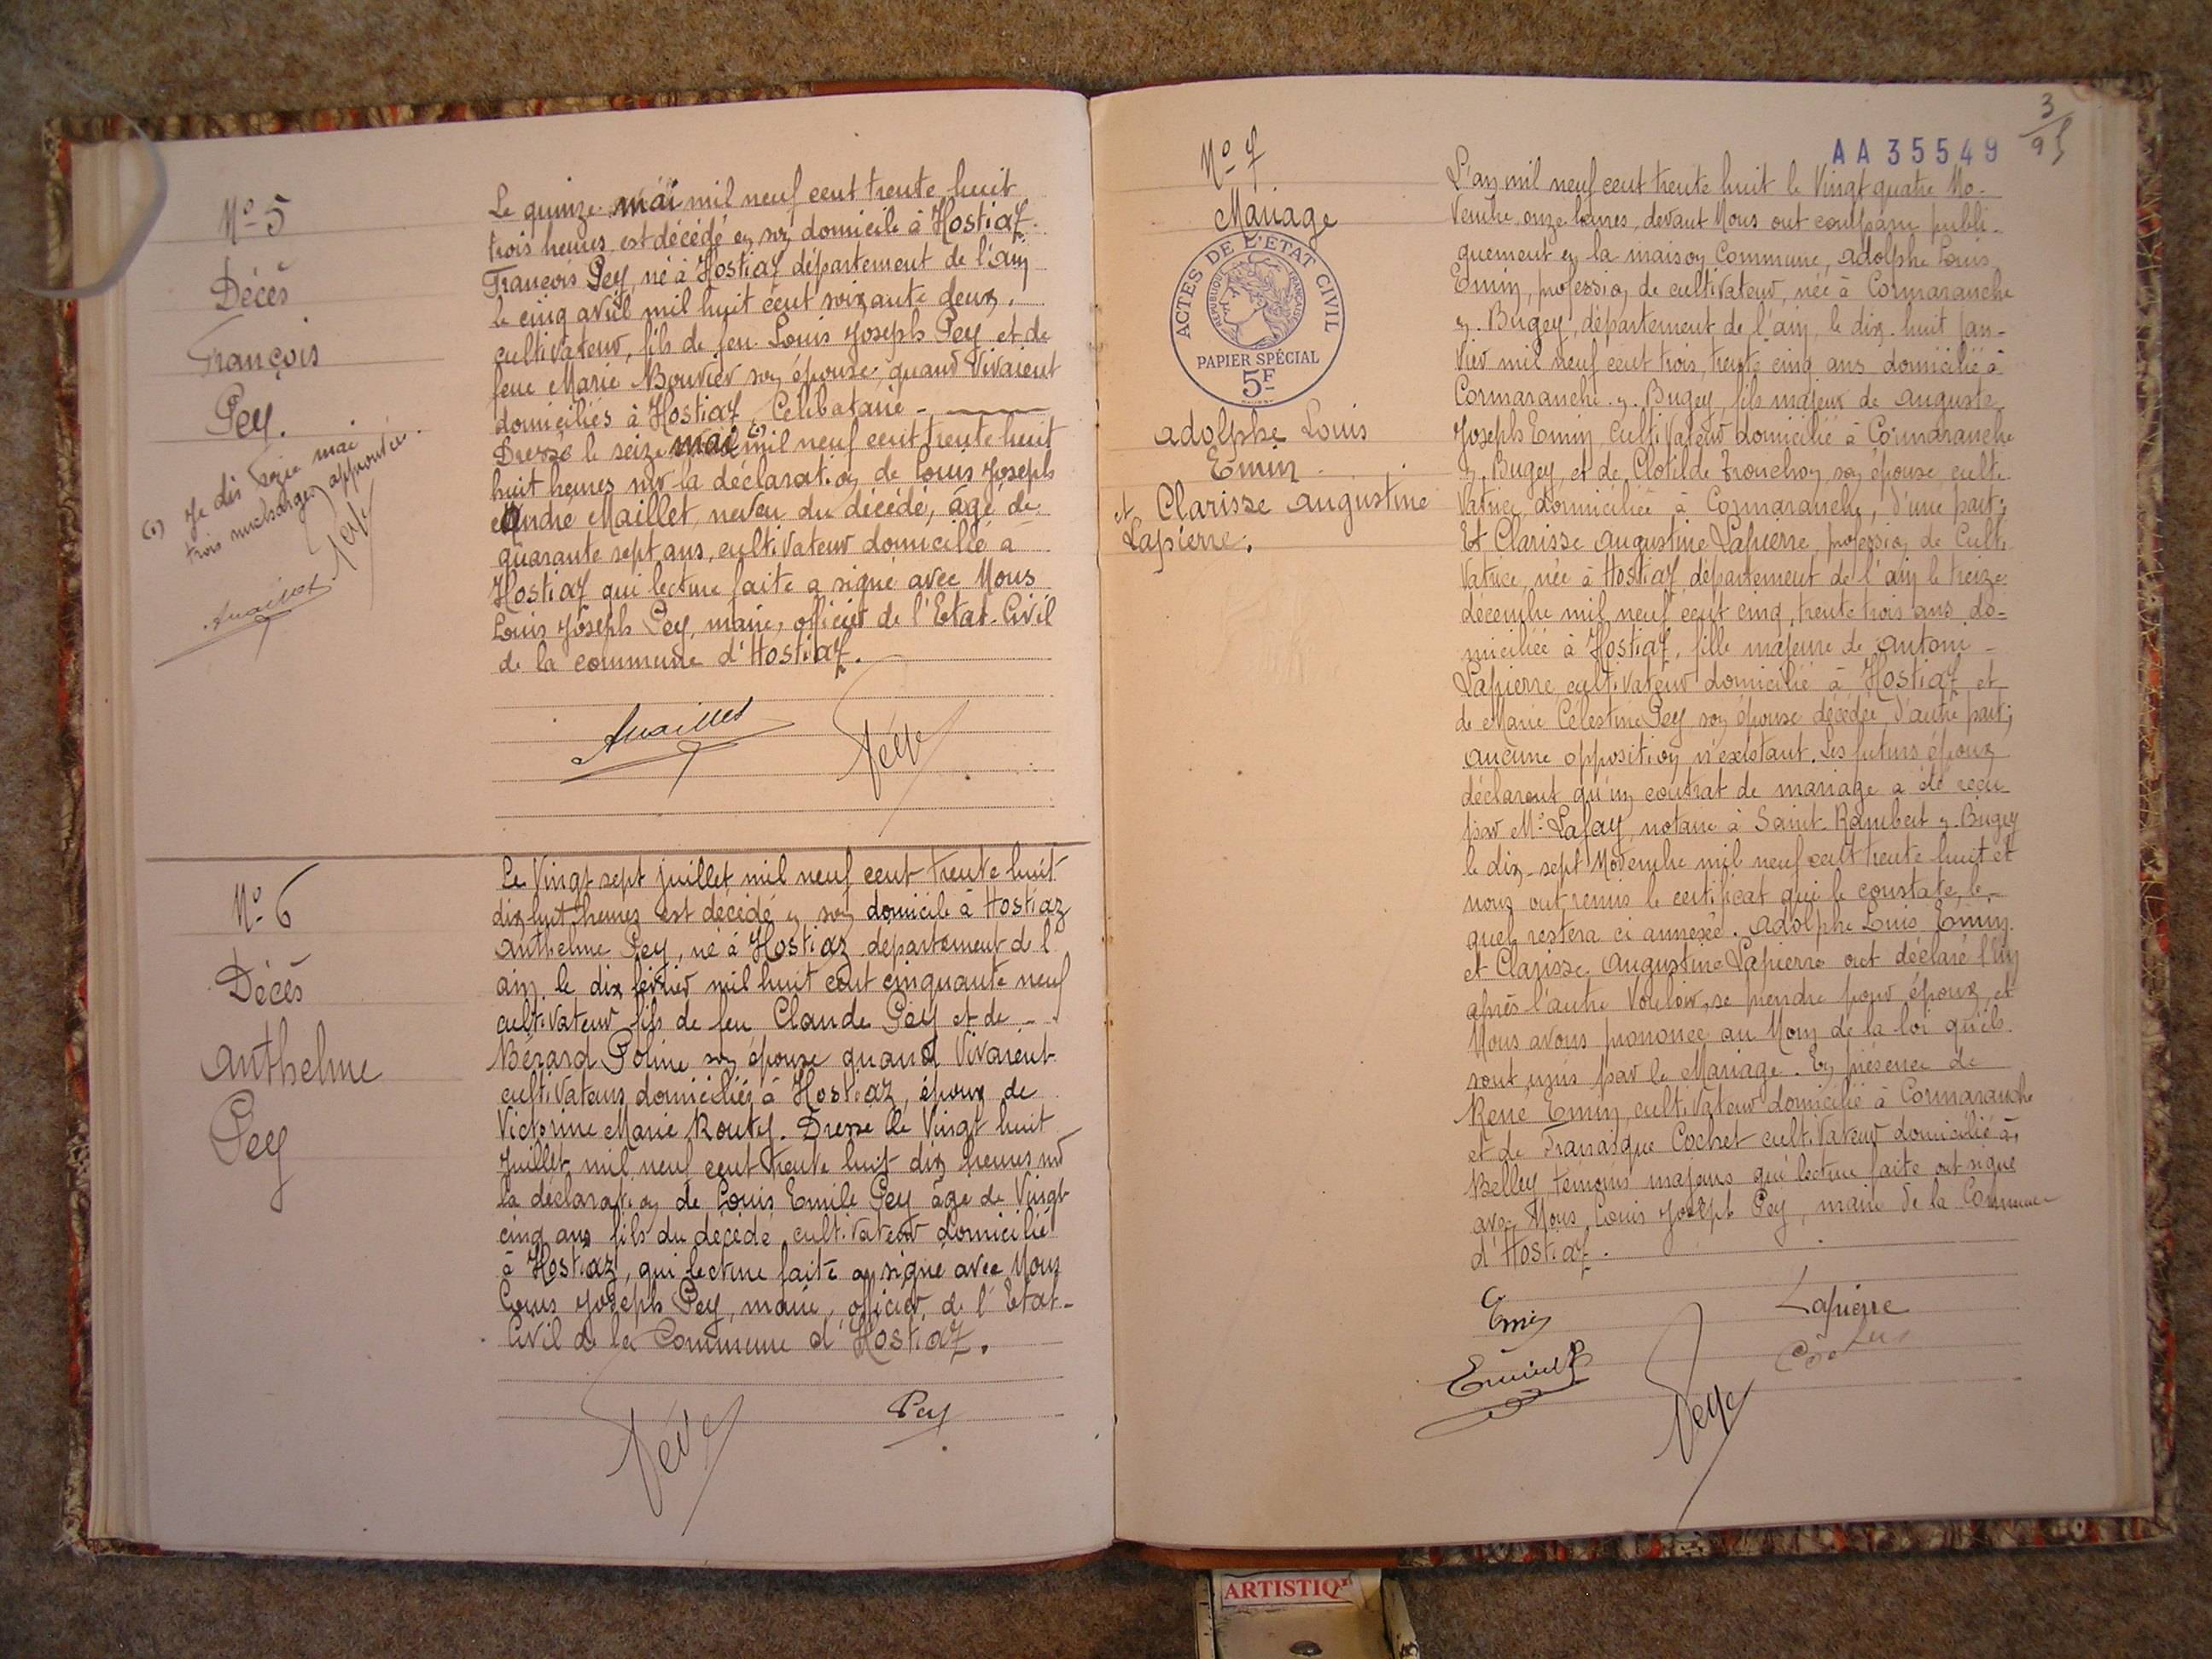 Nº 5
Décès
François
Pey.
(1) Je dis seize mai
trois surcharges approuvées.
Le quinze mai mil neuf cent trente huit
trois heures, est décédé en son domicile à Hostiaz
François Pey, né à Hostiaz département de l'ain
le cinq avril mil huit cent soixante deux.
cultivateur, fils de feu Louis Joseph Pey et de
feue Marie Bouvier son épouse, quand vivaient
domiciliés à Hostiaz, Célibataire -
Dressé le seize mai (1) mil neuf cent trente huit
huit heures sur la déclaration de Louis Joseph
André Maillet, neveu du décédé, âgé de
quarante sept ans, cultivateur domicilié à
Hostiaz qui lecture faite a signé avec Nous
Louis Joseph Pey, maire, officier de l'Etat-Civil
de la commune d'Hostiaz.
Amaillet
Peye
Nº 6
Décès
Anthelme
Pey
Le Vingt sept juillet mil neuf cent trente huit
dix huit heures est décédé en son domicile à Hostiaz
Anthelme Pey, né à Hostiaz département de l'
ain le dix février mil huit cent cinquante neuf
cultivateur fils de feu Claude Pey et de -
Bérard Poline son épouse quand Vivaient
cultivateurs domiciliés à Hostiaz, époux de
Victorine Marie Routy. Dressé le Vingt huit
Juillet mil neuf cent trente huit dix heures sur
la déclaration de Louis Emile Pey âgé de Vingt
cinq ans fils du décédé cultivateur domicilié
à Hostiaz, qui lecture faite a signé avec Nous
Louis Joseph Pey, maire, officier de l'Etat-
Civil de la Commune d'Hostiaz.
Peye
Pey
3/95
AA 35549
Nº 7
Mariage
ACTES DE L'ETAT CIVIL
REPUBLIQUE FRANÇAISE
PAPIER SPÉCIAL
5F
Adolphe Louis
Emin
et Clarisse Augustine
Lapierre.
L'an mil neuf cent trente huit le Vingt quatre No-
vembre onze heures, devant Nous ont comparu publi-
quement en la maison Commune, Adolphe Louis
Emin, profession de cultivateur, née à Cormaranche
en Bugey, département de l'ain, le dix-huit jan-
vier mil neuf cent trois, trente cinq ans domicilié à
Cormaranche en Bugey, fils majeur de Auguste
Joseph Emin, cultivateur domicilié à Cormaranche
en Bugey, et de Clotilde Tronchon, son épouse, culti-
vatrice, domiciliée à Cormaranche, d'une part;
Et Clarisse Augustine Lapierre, profession de Culti
vatrice, née à Hostiaz département de l'ain le treize
décembre mil neuf cent cinq, trente trois ans do-
miciliée à Hostiaz, fille majeure de Antoni -
Lapierre cultivateur domicilié à Hostiaz et
de Marie Célestine Pey son épouse décédée, d'autre part;
aucune opposition n'existant. Les futurs époux
déclarent qu'un contrat de mariage a été reçu
par Me Lafay, notaire à Saint-Rambert en Bugey
le dix-sept Novembre mil neuf cent trente huit et
nous ont remis le certificat qui le constate, le-
quel restera ci annexé. Adolphe Louis Emin
et Clarisse Augustine Lapierre ont déclaré l'un
après l'autre Vouloir se prendre pour époux, et
Nous avons prononcé au Nom de la loi qu'ils
sont unis par le Mariage. En présence de
René Emin, cultivateur domicilié à Cormaranche
et de Cochet cultivateur domicilié à
Belley, témoins majeurs qui lecture faite ont signé
avec Nous, Louis Joseph Pey, maire de la Commune
d'Hostiaz.
Emin
Lapierre
Peye
ARTISTIQ